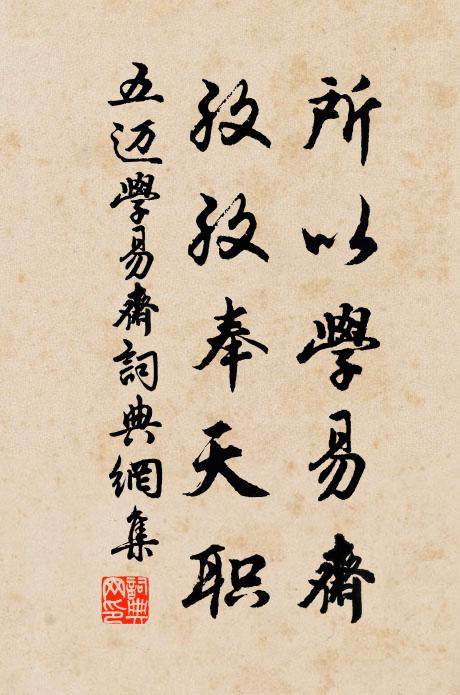 所以學易齋
孜孜奉天职
五迈學易齋詞典網集
詞典网印